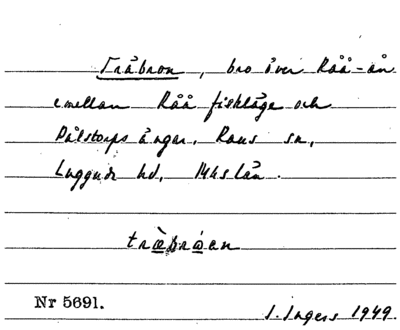 Träbron, bro över Råå-ån
emellan Råå fiskläge och
Pålstorps ängar, Raus sn,
Luggude hd, Mhs län.
träbråen
Nr 5691.
I. Ingers 1949.